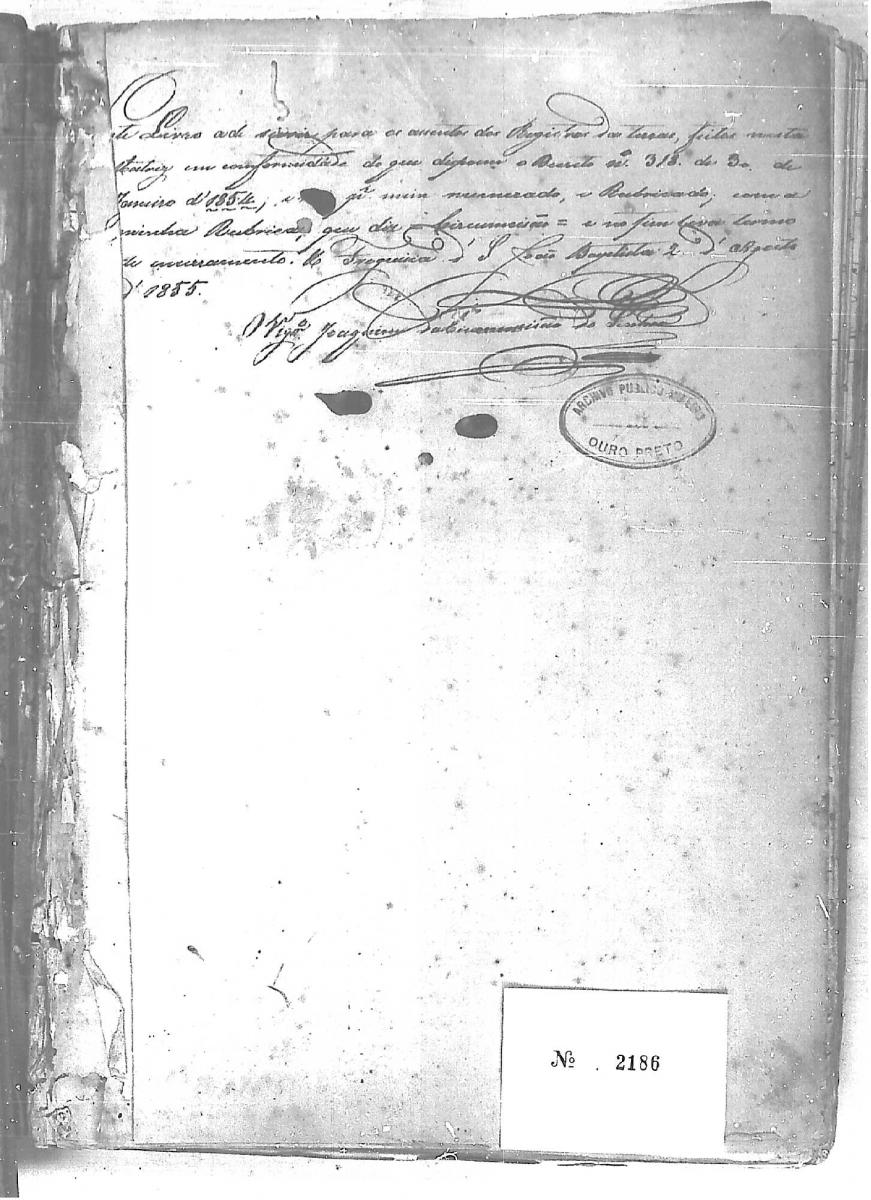 te Livro a de servir para os assentos dos Registros das terras, feitos nesta
Matriz em conformidade do que dispoem o Decreto nº. 318. de 30. de
Janeiro d'1854; e pr. mim numerado, e Rubricado; com a
minha Rubrica, que diz = Circumcisão = e no fim leva termo
de encerramento. Freguesia d' S. João Baptista 2 d' Agosto
d' 1855.
O Vigrº. Joaquim da Circumcisão
ARCHIVO PUBLICO MINEIRO
OURO PRETO
№ . 2186